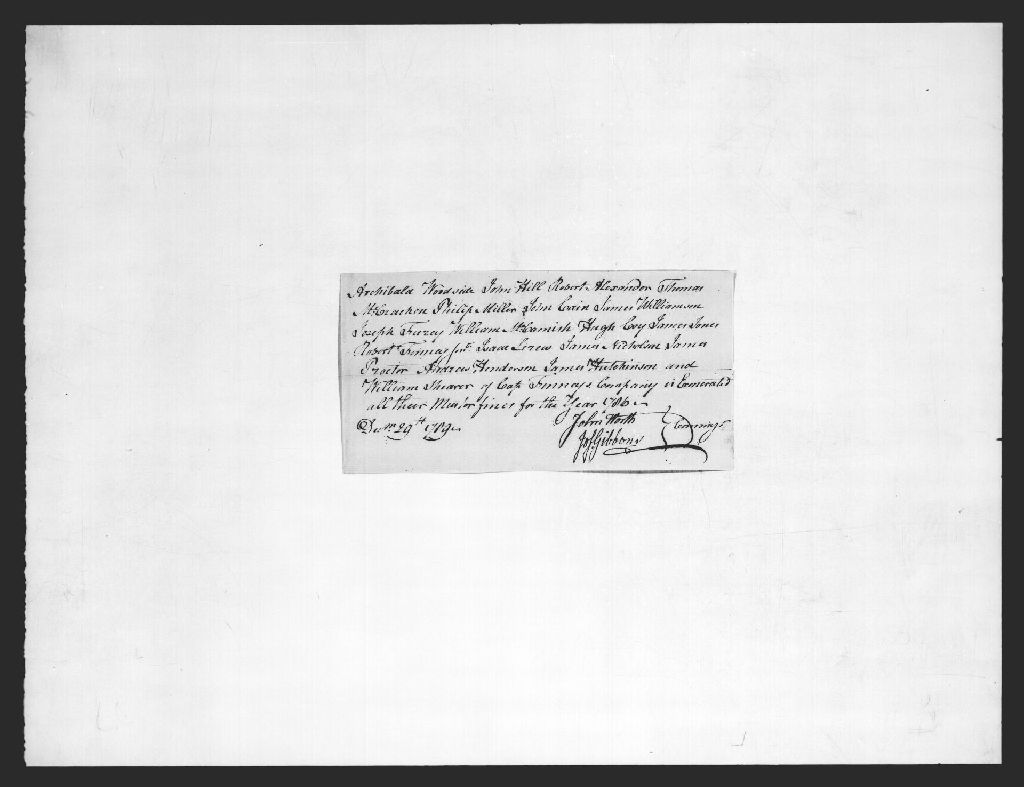 Archibald Woodside John Hill Robert Alexander Thomas
McCrachen Philip Miller John Cvin James Williamson
Joseph Furey William McCamish Hugh Coy James Jones
Robert Finney senr Isaac Lerew James Nicholson James
Procter Andrew Henderson James Hutchinson and
William Shearer of Capt Finneys Company is Exonerated
all their Muster fines for the Year 1786
Decemr 29th 1789
John Worth
Jos Gibbons
Commiss